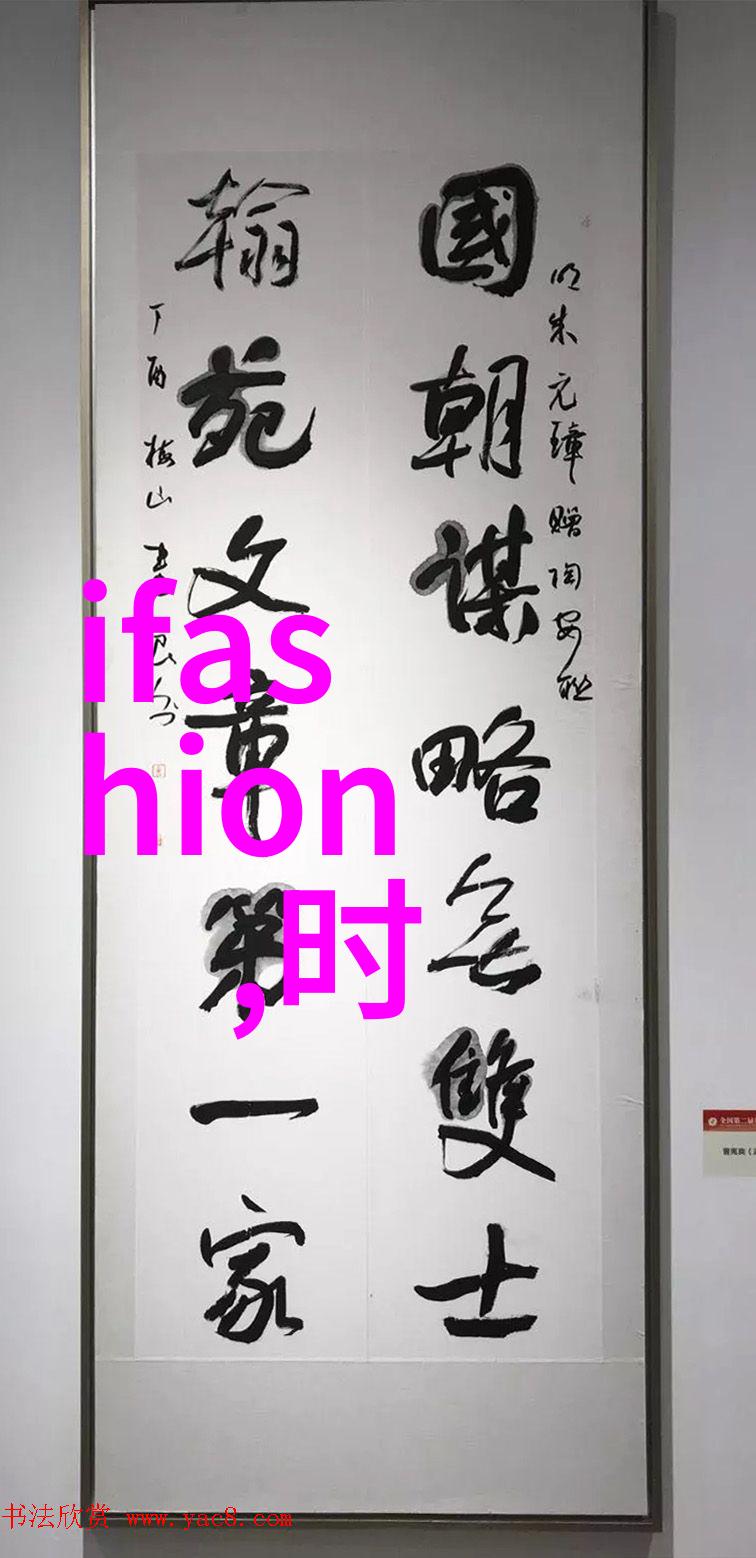 國朝謀略無雙士
明朱元璋贈陶安联
翰苑文章第一家
丁酉 梅山
ifas
hion
,时
全国第二届
曾寃奕
书法欣赏 www.yac8.com